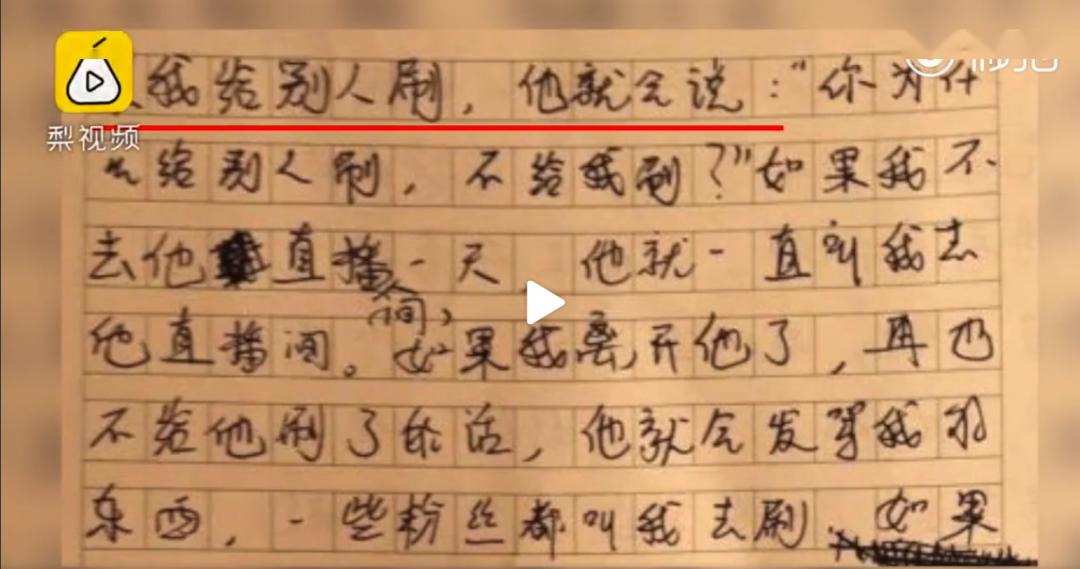 我给别人刷，他就会说：“你为什
么给别人刷，不给我刷？”如果我不
去他直播(间)一天 他就一直叫我去
他直播间。如果我离开他了，再也
不给他刷了的话，他就会发骂我的
东西，一些粉丝都叫我去刷。如果
梨视频
秒拍